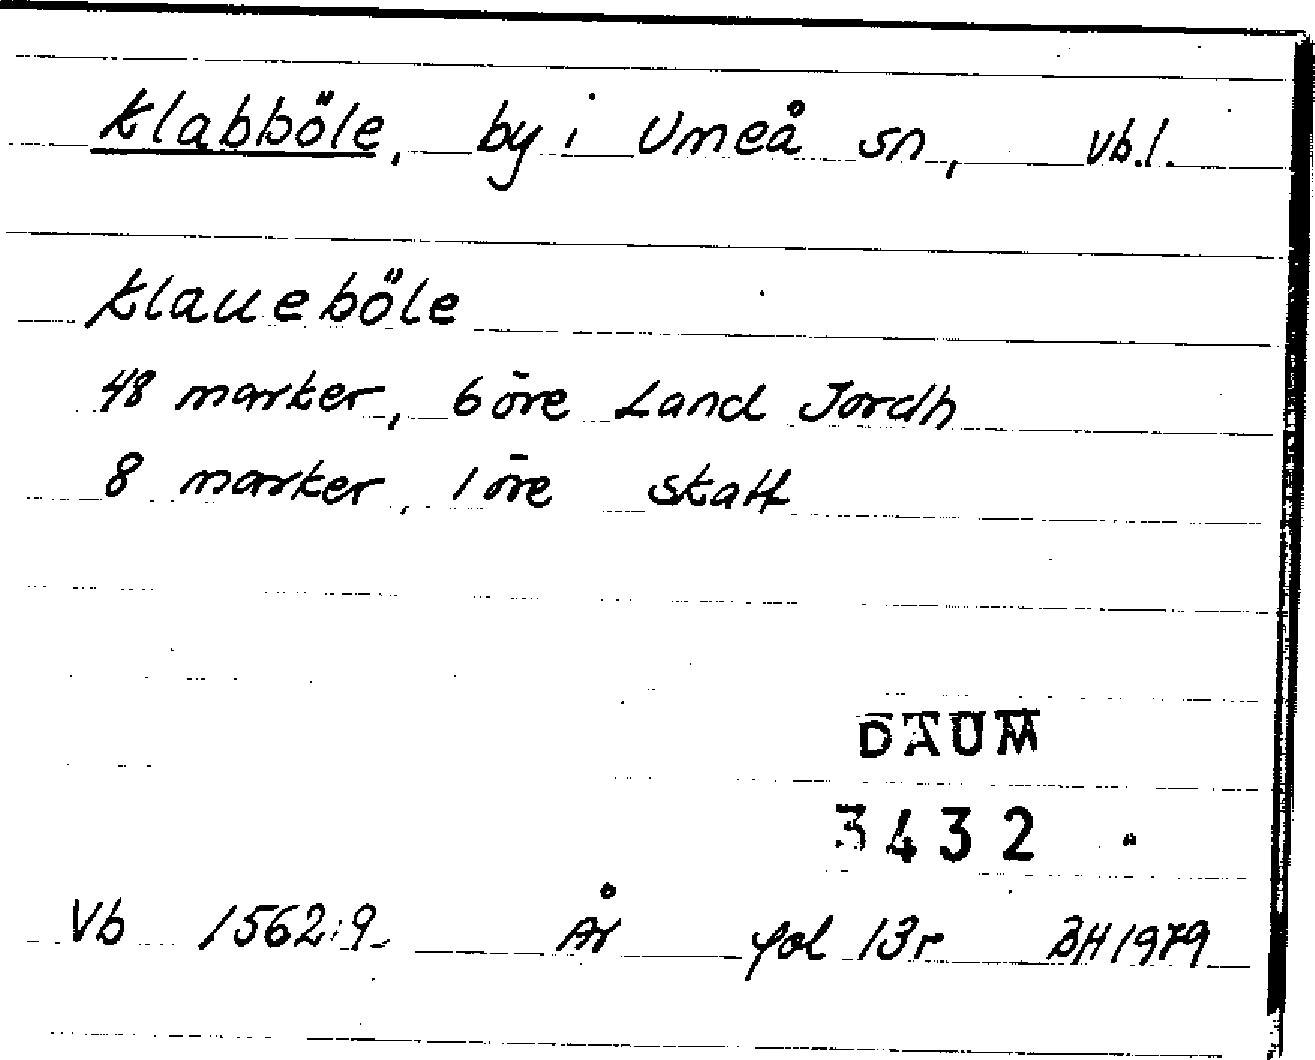 Klabböle, by i Umeå sn, Vb.l.
Klaueböle
48 marker, 6 öre Land Jordh
8 marker, 1 öre skatt
DAUM
3432
Vb 1562:9 År fol 13r BH 1979